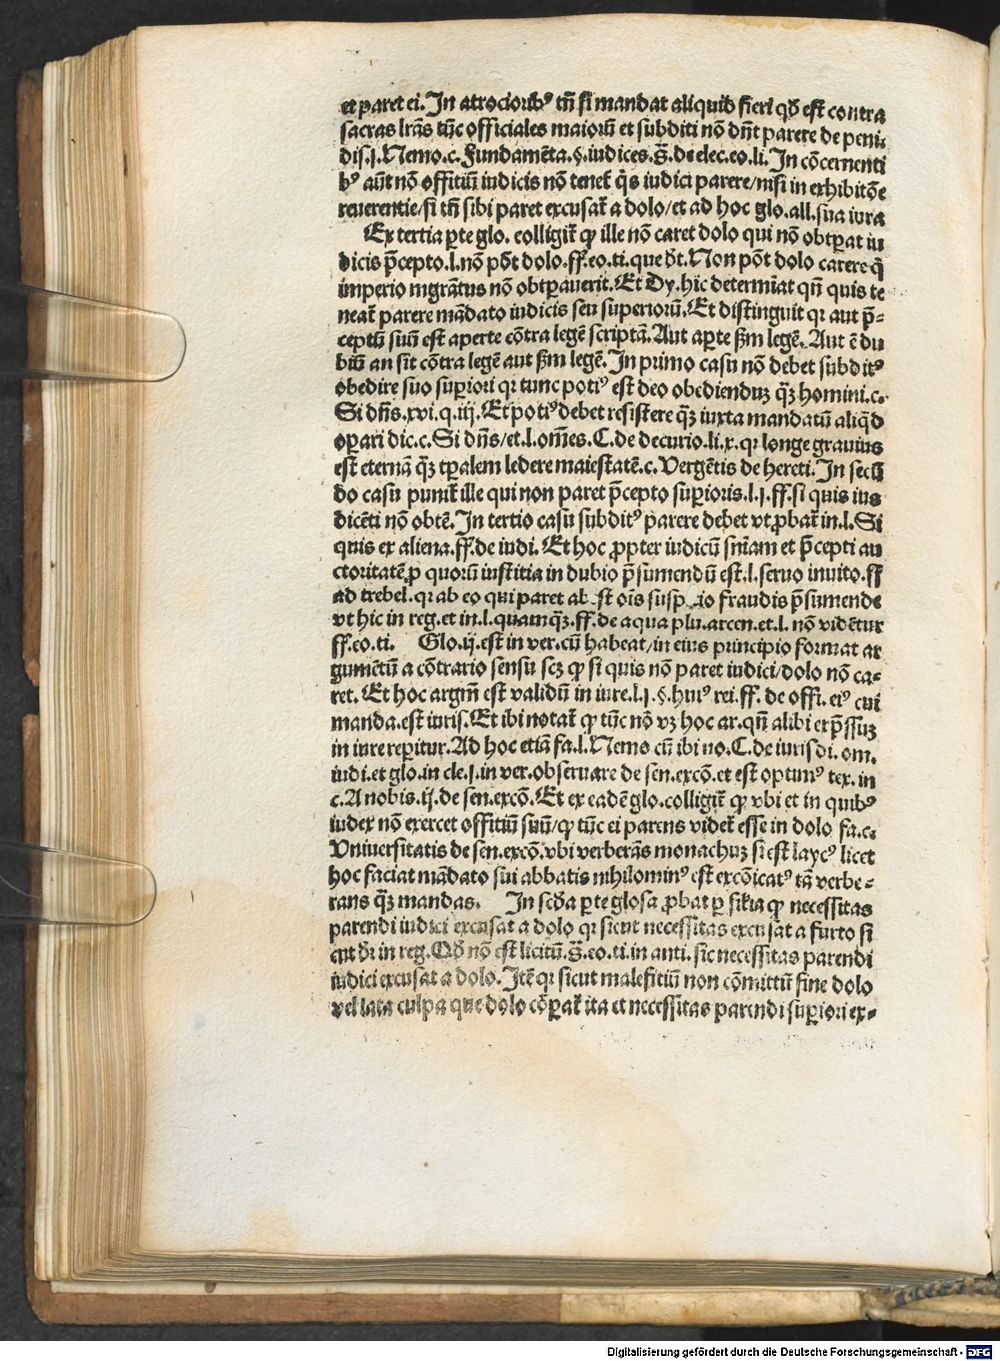 et paret ei. In atrociorib⁹ tñ si mandat aliquid fieri qđ est contra
sacras lr̃as tũc officiales maiorũ et subditi nõ dñt parere de peni.
dis.j. Nemo.c. Fundamẽta.§.iudices. s̃. de elec. eo. li. In cõcernenti
b⁹ aũt nõ offitiũ iudicis nõ tenet̃ q̃s iudici parere/nisi in exhibitõe
reuerentie/si tñ sibi paret excusat̃ a dolo/et ad hoc glo. all. sua iura
Ex tertia ꝑte glo. colligit̃ ꝙ ille nõ caret dolo qui nõ obtꝑat iu
dicis p̃cepto.l. nõ põt dolo. ff. eo. ti. que dr̃t. Non põt dolo carere q̃
imperio mgrãtus nõ obtꝑauerit. Et Dy. hic determĩat qñ quis te
neat̃ parere mãdato iudicis seu superiorũ. Et distinguit qꝛ aut p̃-
ceptũ suũ est aperte cõtra legẽ scriptã. Aut aꝑte s̃m legẽ. Aut ẽ du
biũ an sit cõtra legẽ aut s̃m legẽ. In primo casu nõ debet subdit⁹
obedire suo suꝑiori qꝛ tunc poti⁹ est deo obediendũ q̃ꝫ homini. c.
Si dñs. xxi. q. iij. Et poti⁹ debet resistere q̃ꝫ iuxta mandatũ aliq̃d
oꝑari dic. c. Si dñs/et. l. om̃es. C. de decurio. li. x. qꝛ longe grauius
est eternã q̃ꝫ tꝑalem ledere maiestatẽ. c. Vergẽtis de hereti. In secũ
do casu punit̃ ille qui non paret p̃cepto suꝑioris. l. j. ff. si quis ius
dicẽti nõ obtẽ. In tertio casu subdit⁹ parere debet vt ꝓbat̃ in. l. Si
quis ex aliena. ff. de iudi. Et hoc ꝓpter iudicũ sñiam et p̃cepti au
ctoritatẽ ꝓ quorũ iustitia in dubio p̃sumendũ est. l. seruo inuito. ff
ad trebel. qꝛ ab eo qui paret ab st oĩs susp io fraudis p̃sumende
vt hic in reg. et in. l. quamq̃ꝫ. ff. de aqua plu. arcen. et. l. nõ vidẽtur
ff. eo. ti. Glo. ij. est in ver. cũ habeat/in eius principio format ar
gumẽtũ a cõtrario sensu scꝫ ꝙ si quis nõ paret iudici/dolo nõ ca-
ret. Et hoc argm̃ est validũ in iure. l. j. §. hui⁹ rei. ff. de offi. ei⁹ cui
manda. est iuris. Et ibi notat̃ ꝙ tũc nõ vꝫ hoc ar. qñ alibi exp̃ssuꝫ
in iure reꝑitur. Ad hoc etiã fa. l. Nemo cũ ibi no. C. de iurisdi. om.
iudi. et glo. in cle. j. in ver. obseruare de sen. excõ. et est optim⁹ tex. in
c. A nobis. ij. de sen. excõ. Et ex eadẽ glo. colligit̃ ꝙ vbi et in quib⁹
iudex nõ exercet offitiũ suũ/ꝙ tũc ei parens videt̃ esse in dolo fa. c.
Vniuersitatis de sen. excõ. vbi verberãs monachuꝫ si est layc⁹ licet
hoc faciat mãdato sui abbatis nihilomin⁹ est excõicat⁹ tã verbe-
rans q̃ꝫ mandas. In scđa ꝑte glosa ꝓbat ꝑ sĩlia ꝙ necessitas
parendi iudici excusat a dolo qꝛ sicut necessitas excusat a furto si
cut dr̃ in reg. Qđ nõ est licitũ. s̃. eo. ti. in anti. sic necessitas parendi
iudici excusat a dolo. Itẽ qꝛ sicut malefitiũ non cõmittũ sine dolo
vel lata culpa que dolo cõꝑat̃ ita et necessitas parendi suꝑiori ex-
Digitalisierung gefördert durch die Deutsche Forschungsgemeinschaft - DFG